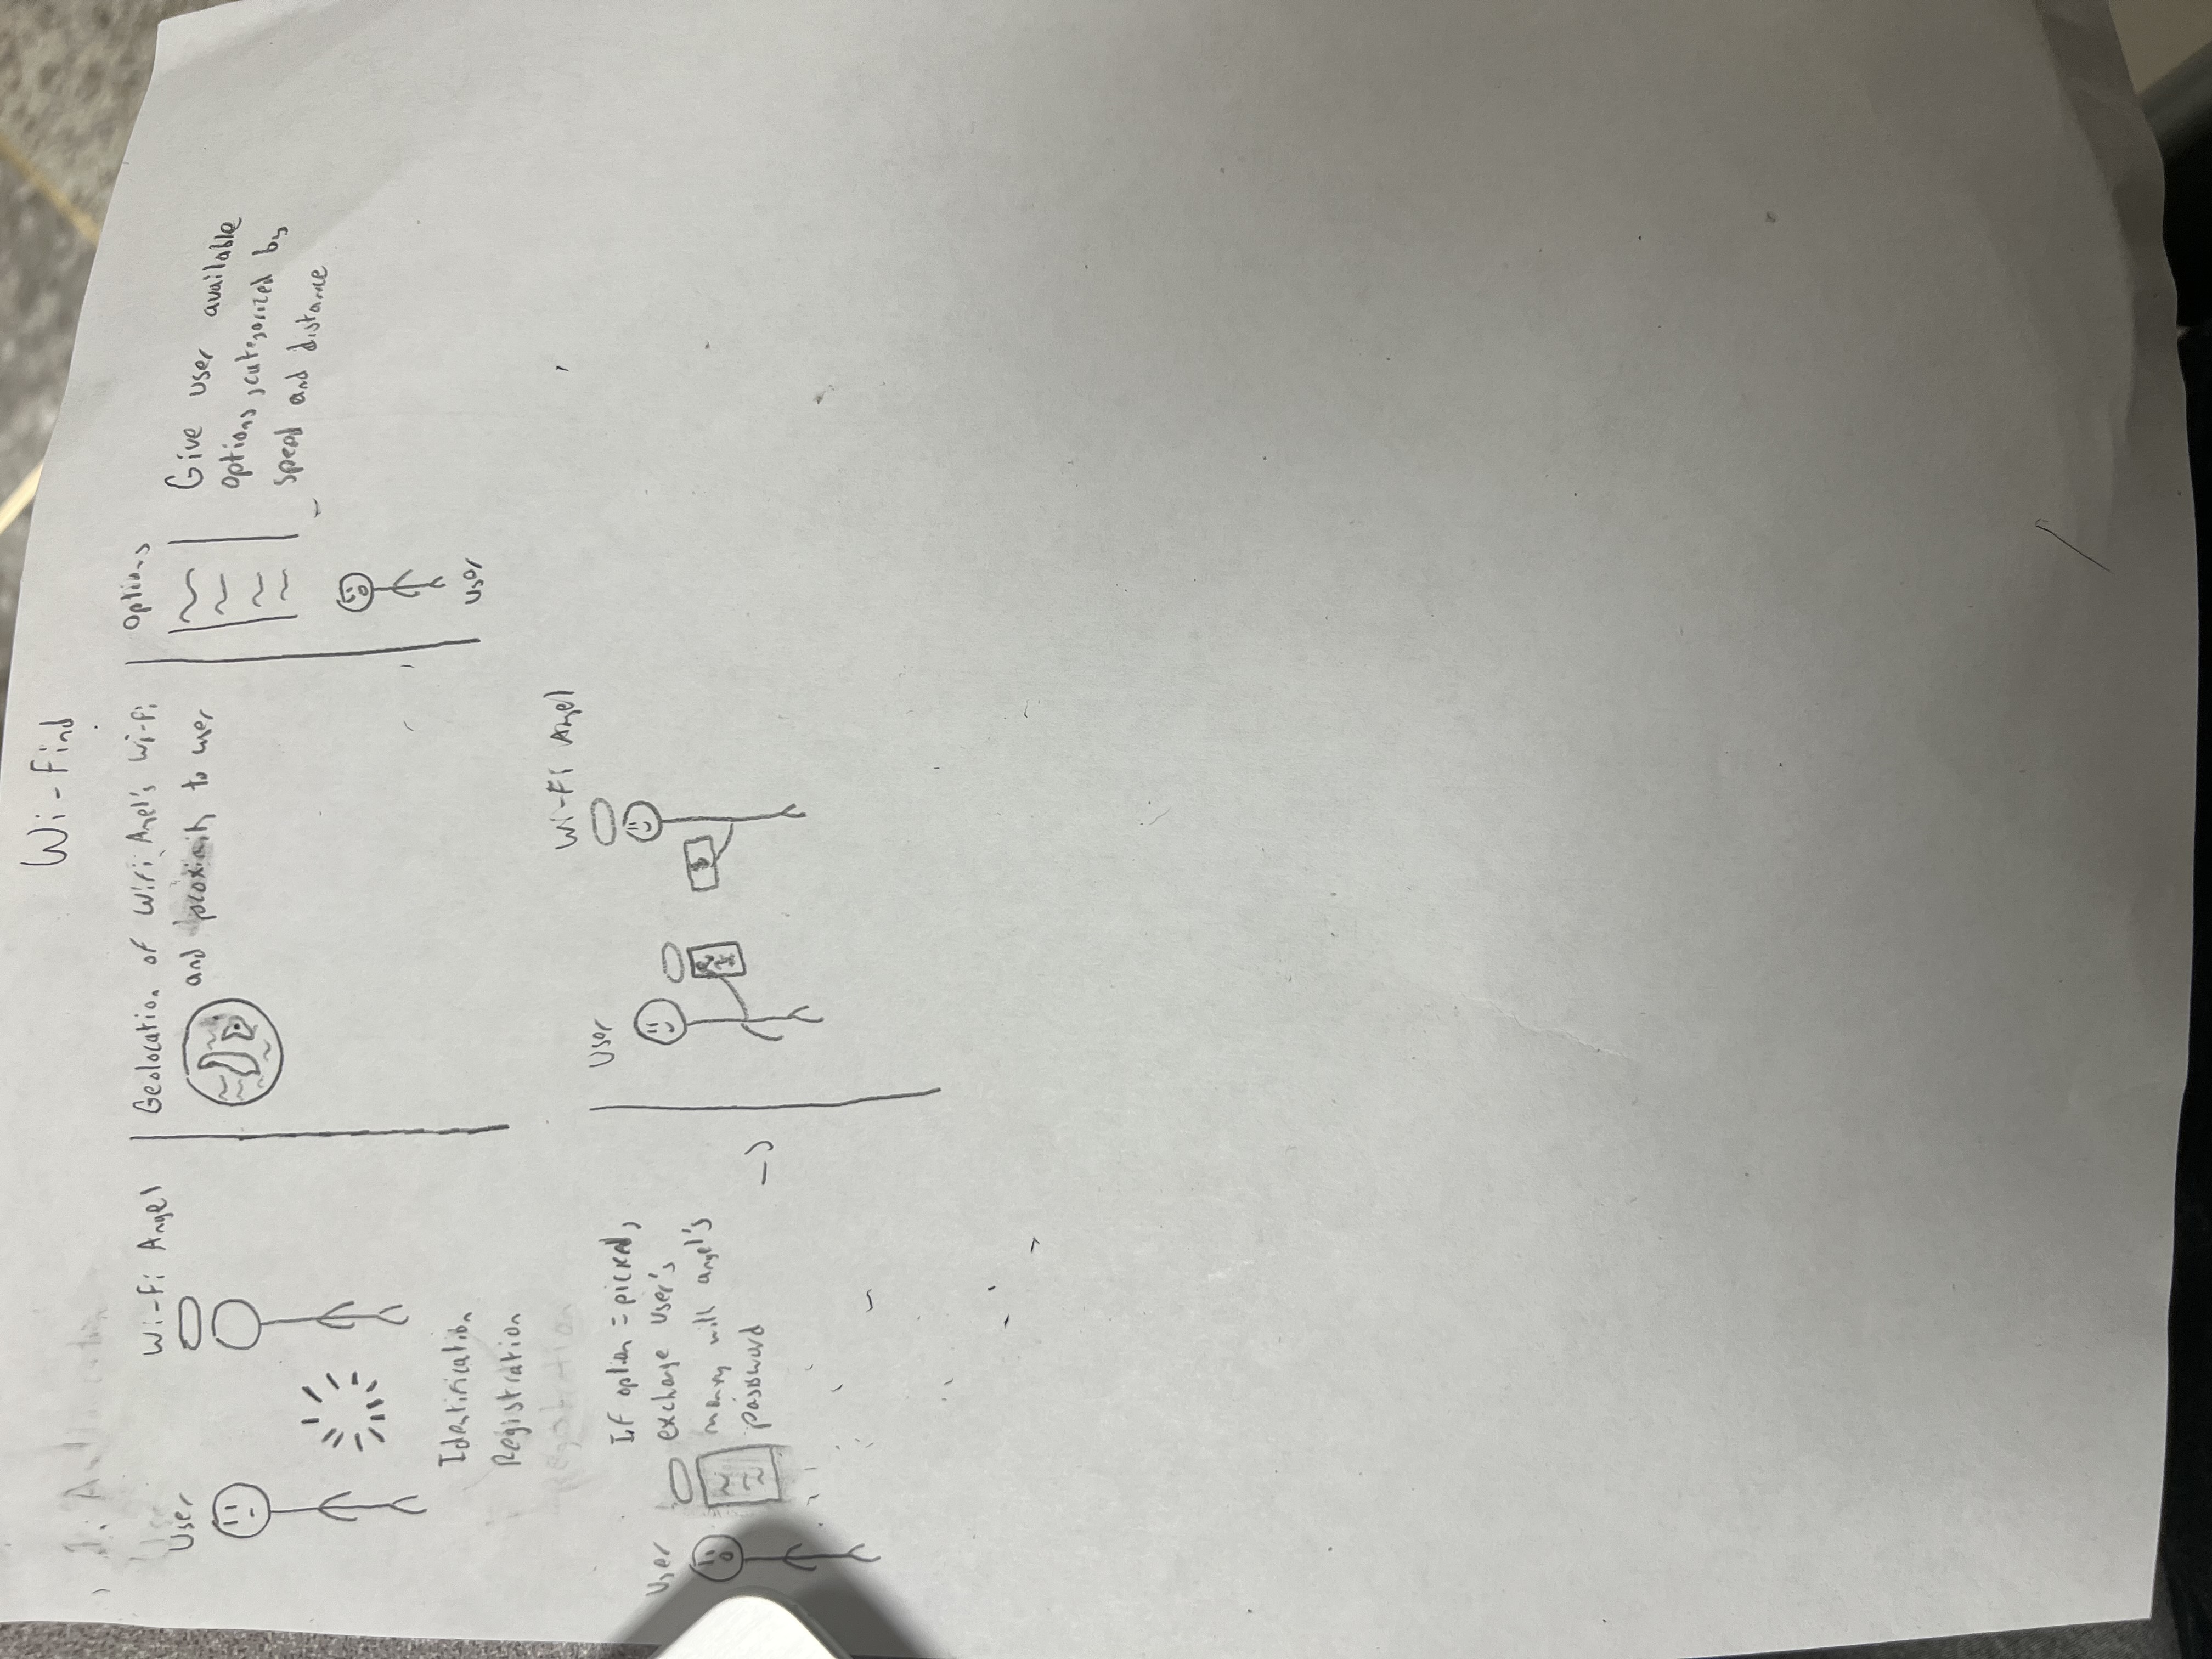 Wi-Find
User
Wi-Fi Angel
Identification
Registration
Geolocation of WiFi Angel's Wi-Fi
and proximity to user
Options
Give user available
options, categorized by
speed and distance
User
User
If option = picked,
exchange user's
money with angel's
password
User
Wi-Fi Angel
$